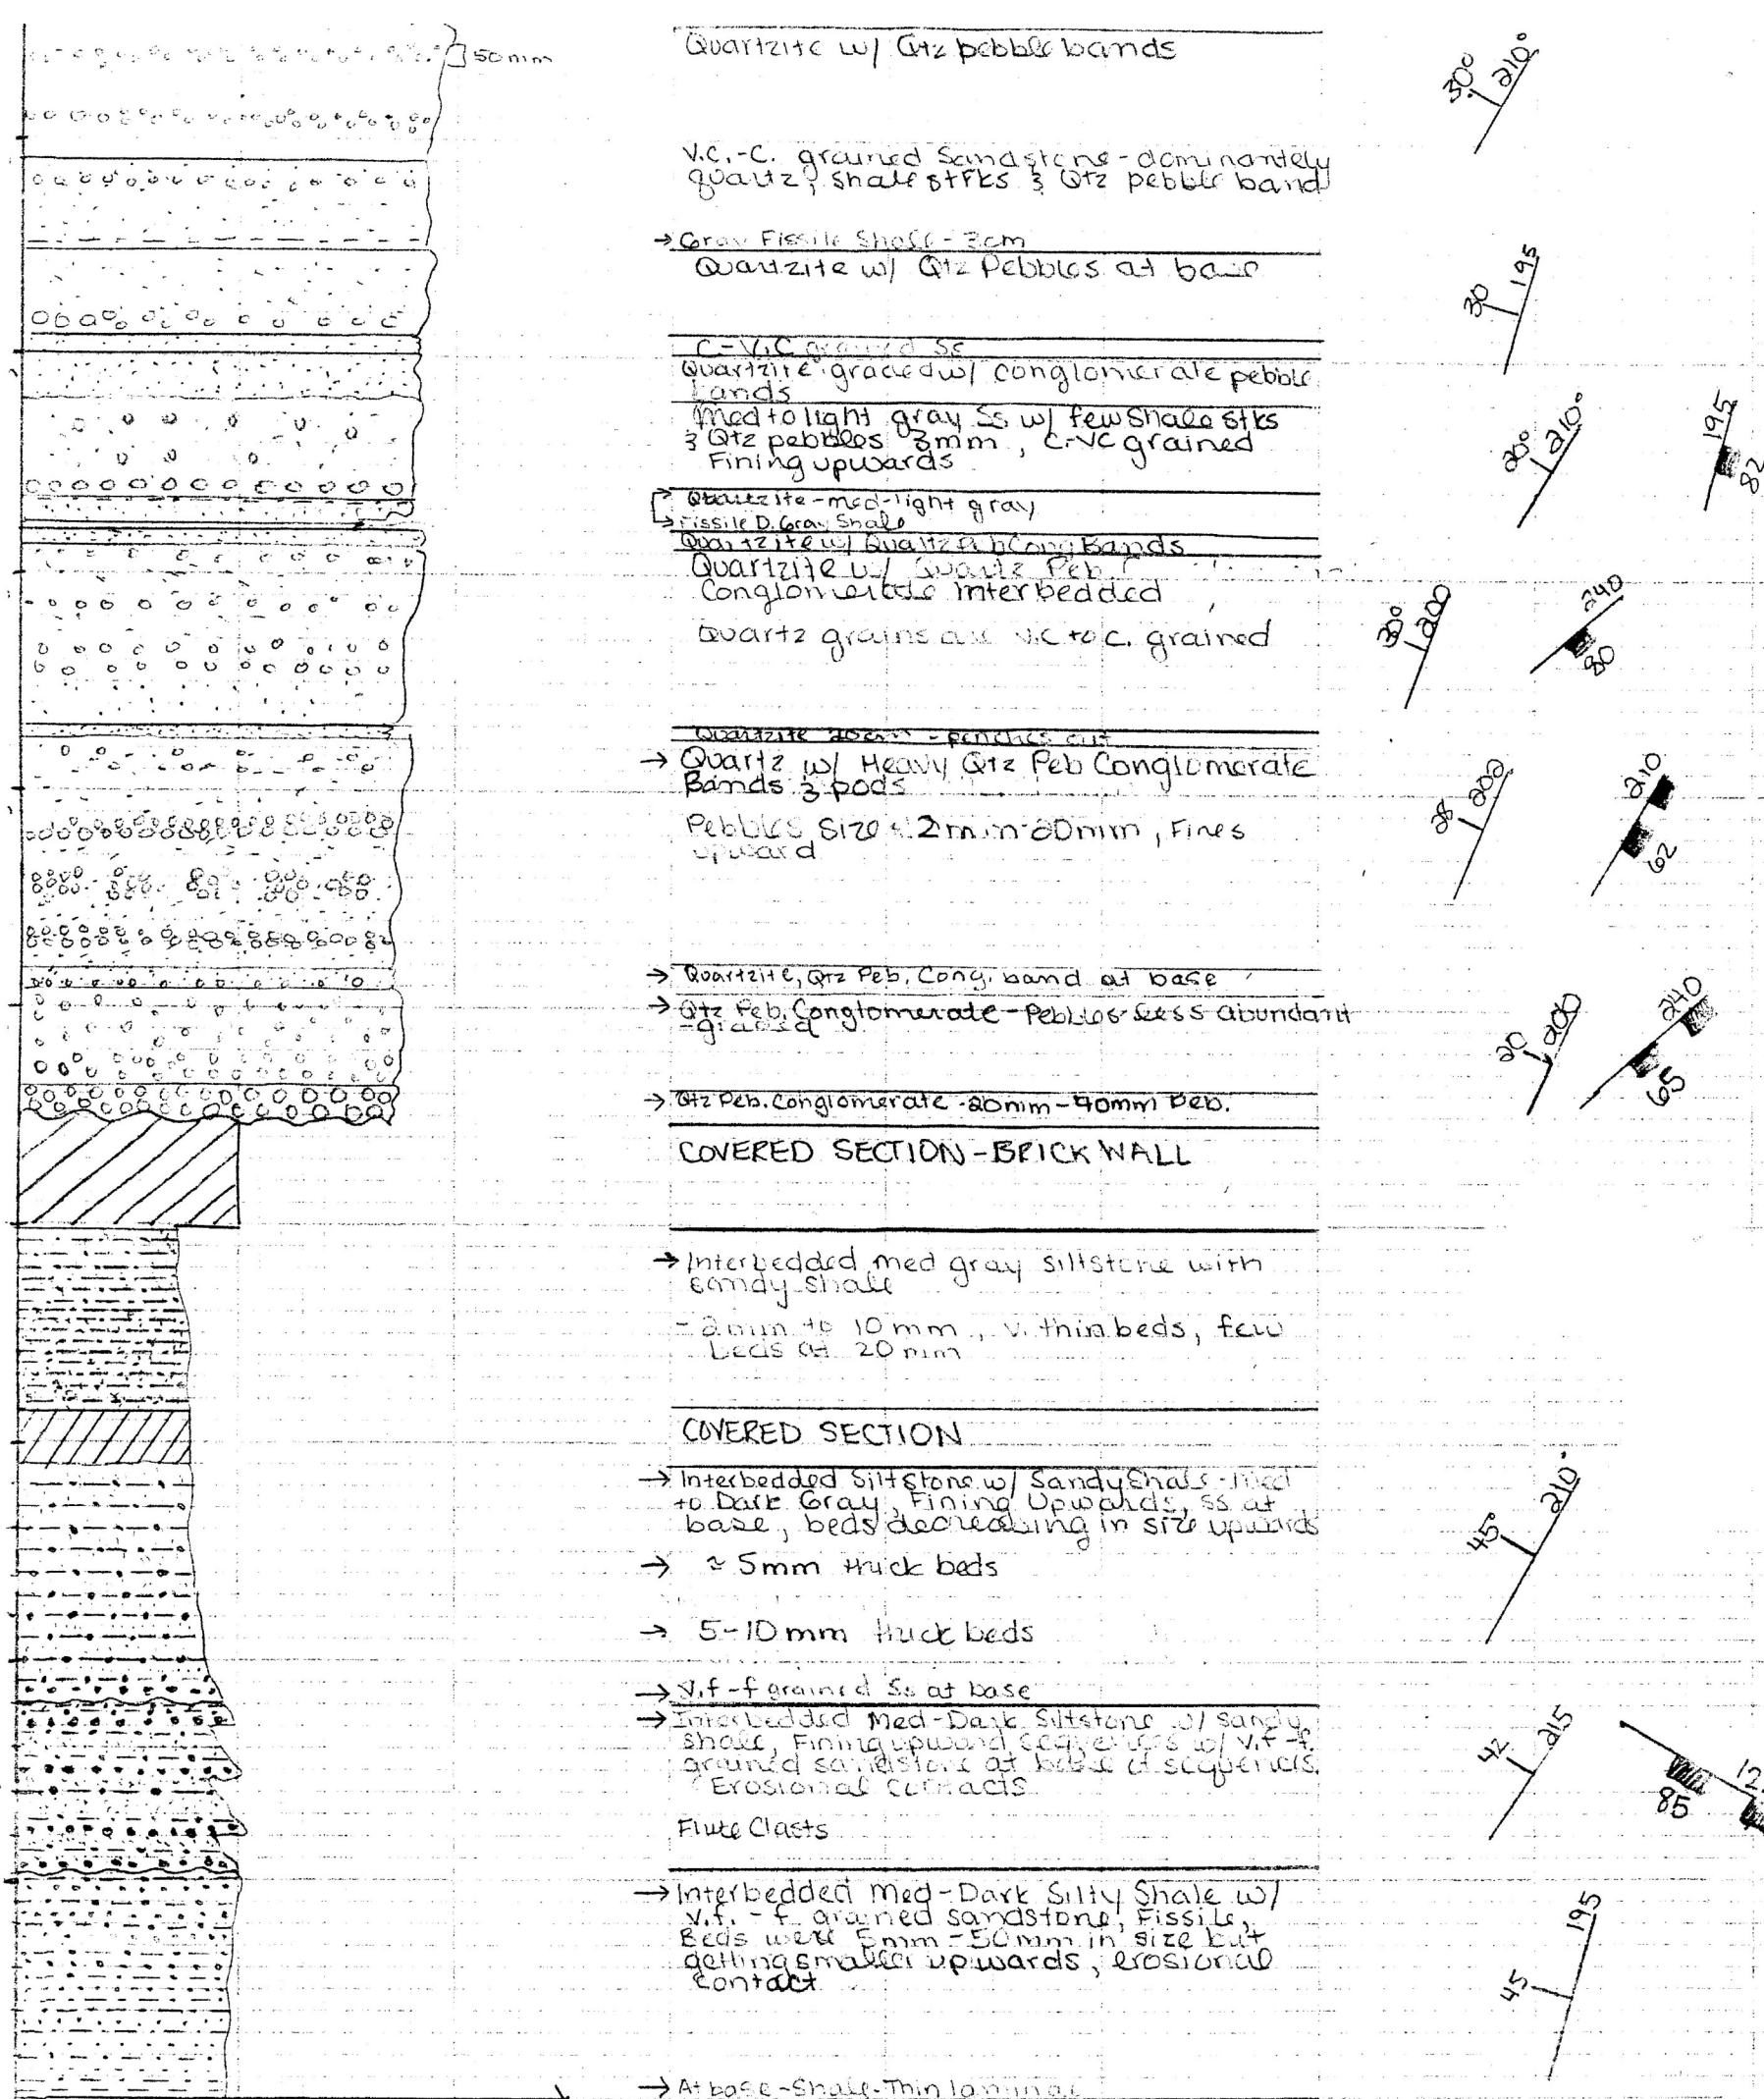 50mm
Quartzite w/ Qtz pebble bands
30° 210°
V.C.-C. grained Sandstone-dominantely
quartz, shale stks & Qtz pebble band
→ Gray Fissile Shale - 3cm
Quartzite w/ Qtz Pebbles at base
30 195
C-V.C grained Ss
Quartzite graded w/ conglomerate pebble
bands
Med to light gray Ss w/ few Shale stks
& Qtz pebbles 3mm, C-VC grained
Fining upwards
20° 210°
195 82
→ Quartzite-med-light gray
→ Fissile D. Gray Shale
Quartzite w/ Quartz Cong Bands
Quartzite w/ Quartz Peb
Conglomerate interbedded
Quartz grains are v.c to c. grained
30° 200
240 80
Quartzite 20cm - penches out
→ Quartz w/ Heavy Qtz Peb Conglomerate
Bands & pods
Pebbles Size 2mm-60mm, Fines
upward
25 200
210 62
→ Quartzite, Qtz Peb. Cong. band at base
→ Qtz Peb. Conglomerate - Pebbles less abundant
-graded
20 200
240 65
→ Qtz Peb. Conglomerate - 20mm-40mm Peb.
COVERED SECTION-BRICK WALL
→ Interbedded med gray siltstone with
sandy shale
- 2mm to 10mm, v. thin beds, few
beds at 20mm
COVERED SECTION
→ Interbedded Siltstone w/ Sandy Shale-Med
to Dark Gray, Fining Upwards, ss at
base, beds decreasing in size upwards
45° 210°
→ ≈ 5mm thick beds
→ 5-10mm thick beds
→ V.f-f grained Ss at base
→ Interbedded Med-Dark Siltstone w/ sandy
shale, Fining upward sequences w/ v.f-f
grained sandstone at base of sequences.
Erosional contacts
42 215
85 12
Flute Clasts
→ Interbedded Med-Dark Silty Shale w/
V.f. - f grained sandstone, Fissile,
Beds were 5mm-50mm in size but
getting smaller upwards, erosional
contact
45 195
→ At base-Shale-Thin laminae